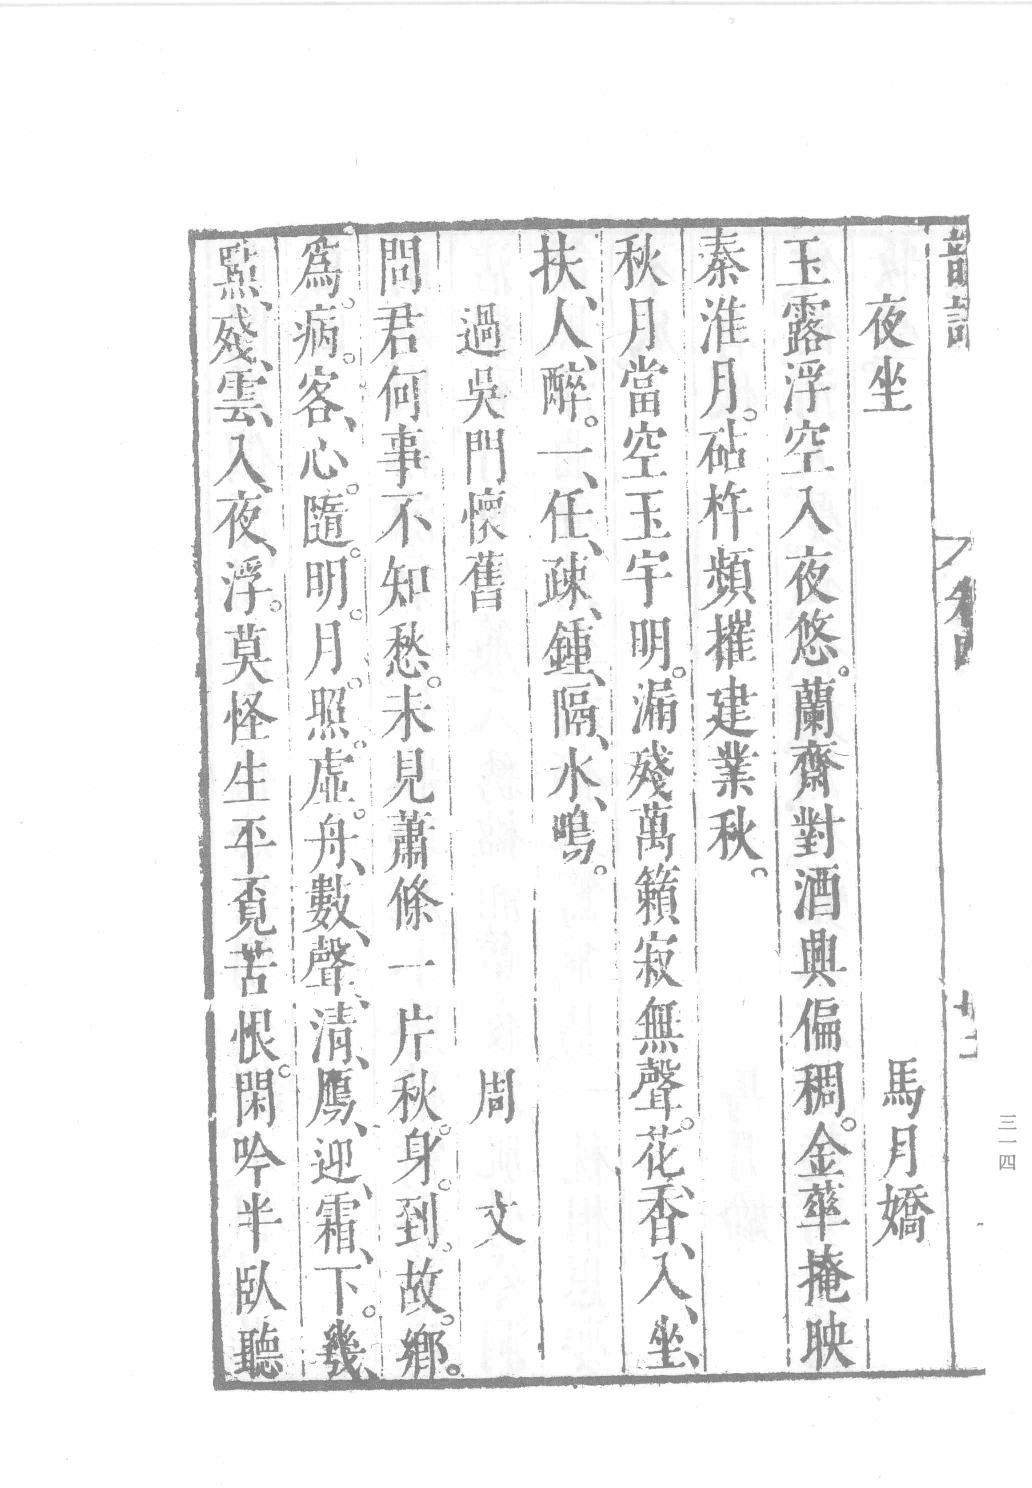 夜坐　馬月嬌
玉露浮空入夜悠。蘭齋對酒興偏稠。金華掩映
秦淮月。砧杵頻摧建業秋。
秋月當空玉宇明。漏殘萬籟寂無聲。花、香、入、坐、
扶、人、醉。一、任、疎、鍾、隔、水、鳴。
過吳門懷舊　周　文
問君何事不知愁。未見蕭條一片秋。身。到。故。鄉。
為。病。客、心。隨。明。月。照。虛。舟、數、聲、清、鴈、迎、霜、下。幾、
點、殘、雲、入、夜、浮。莫怪生平覔苦恨。閑吟半臥聽
三一四